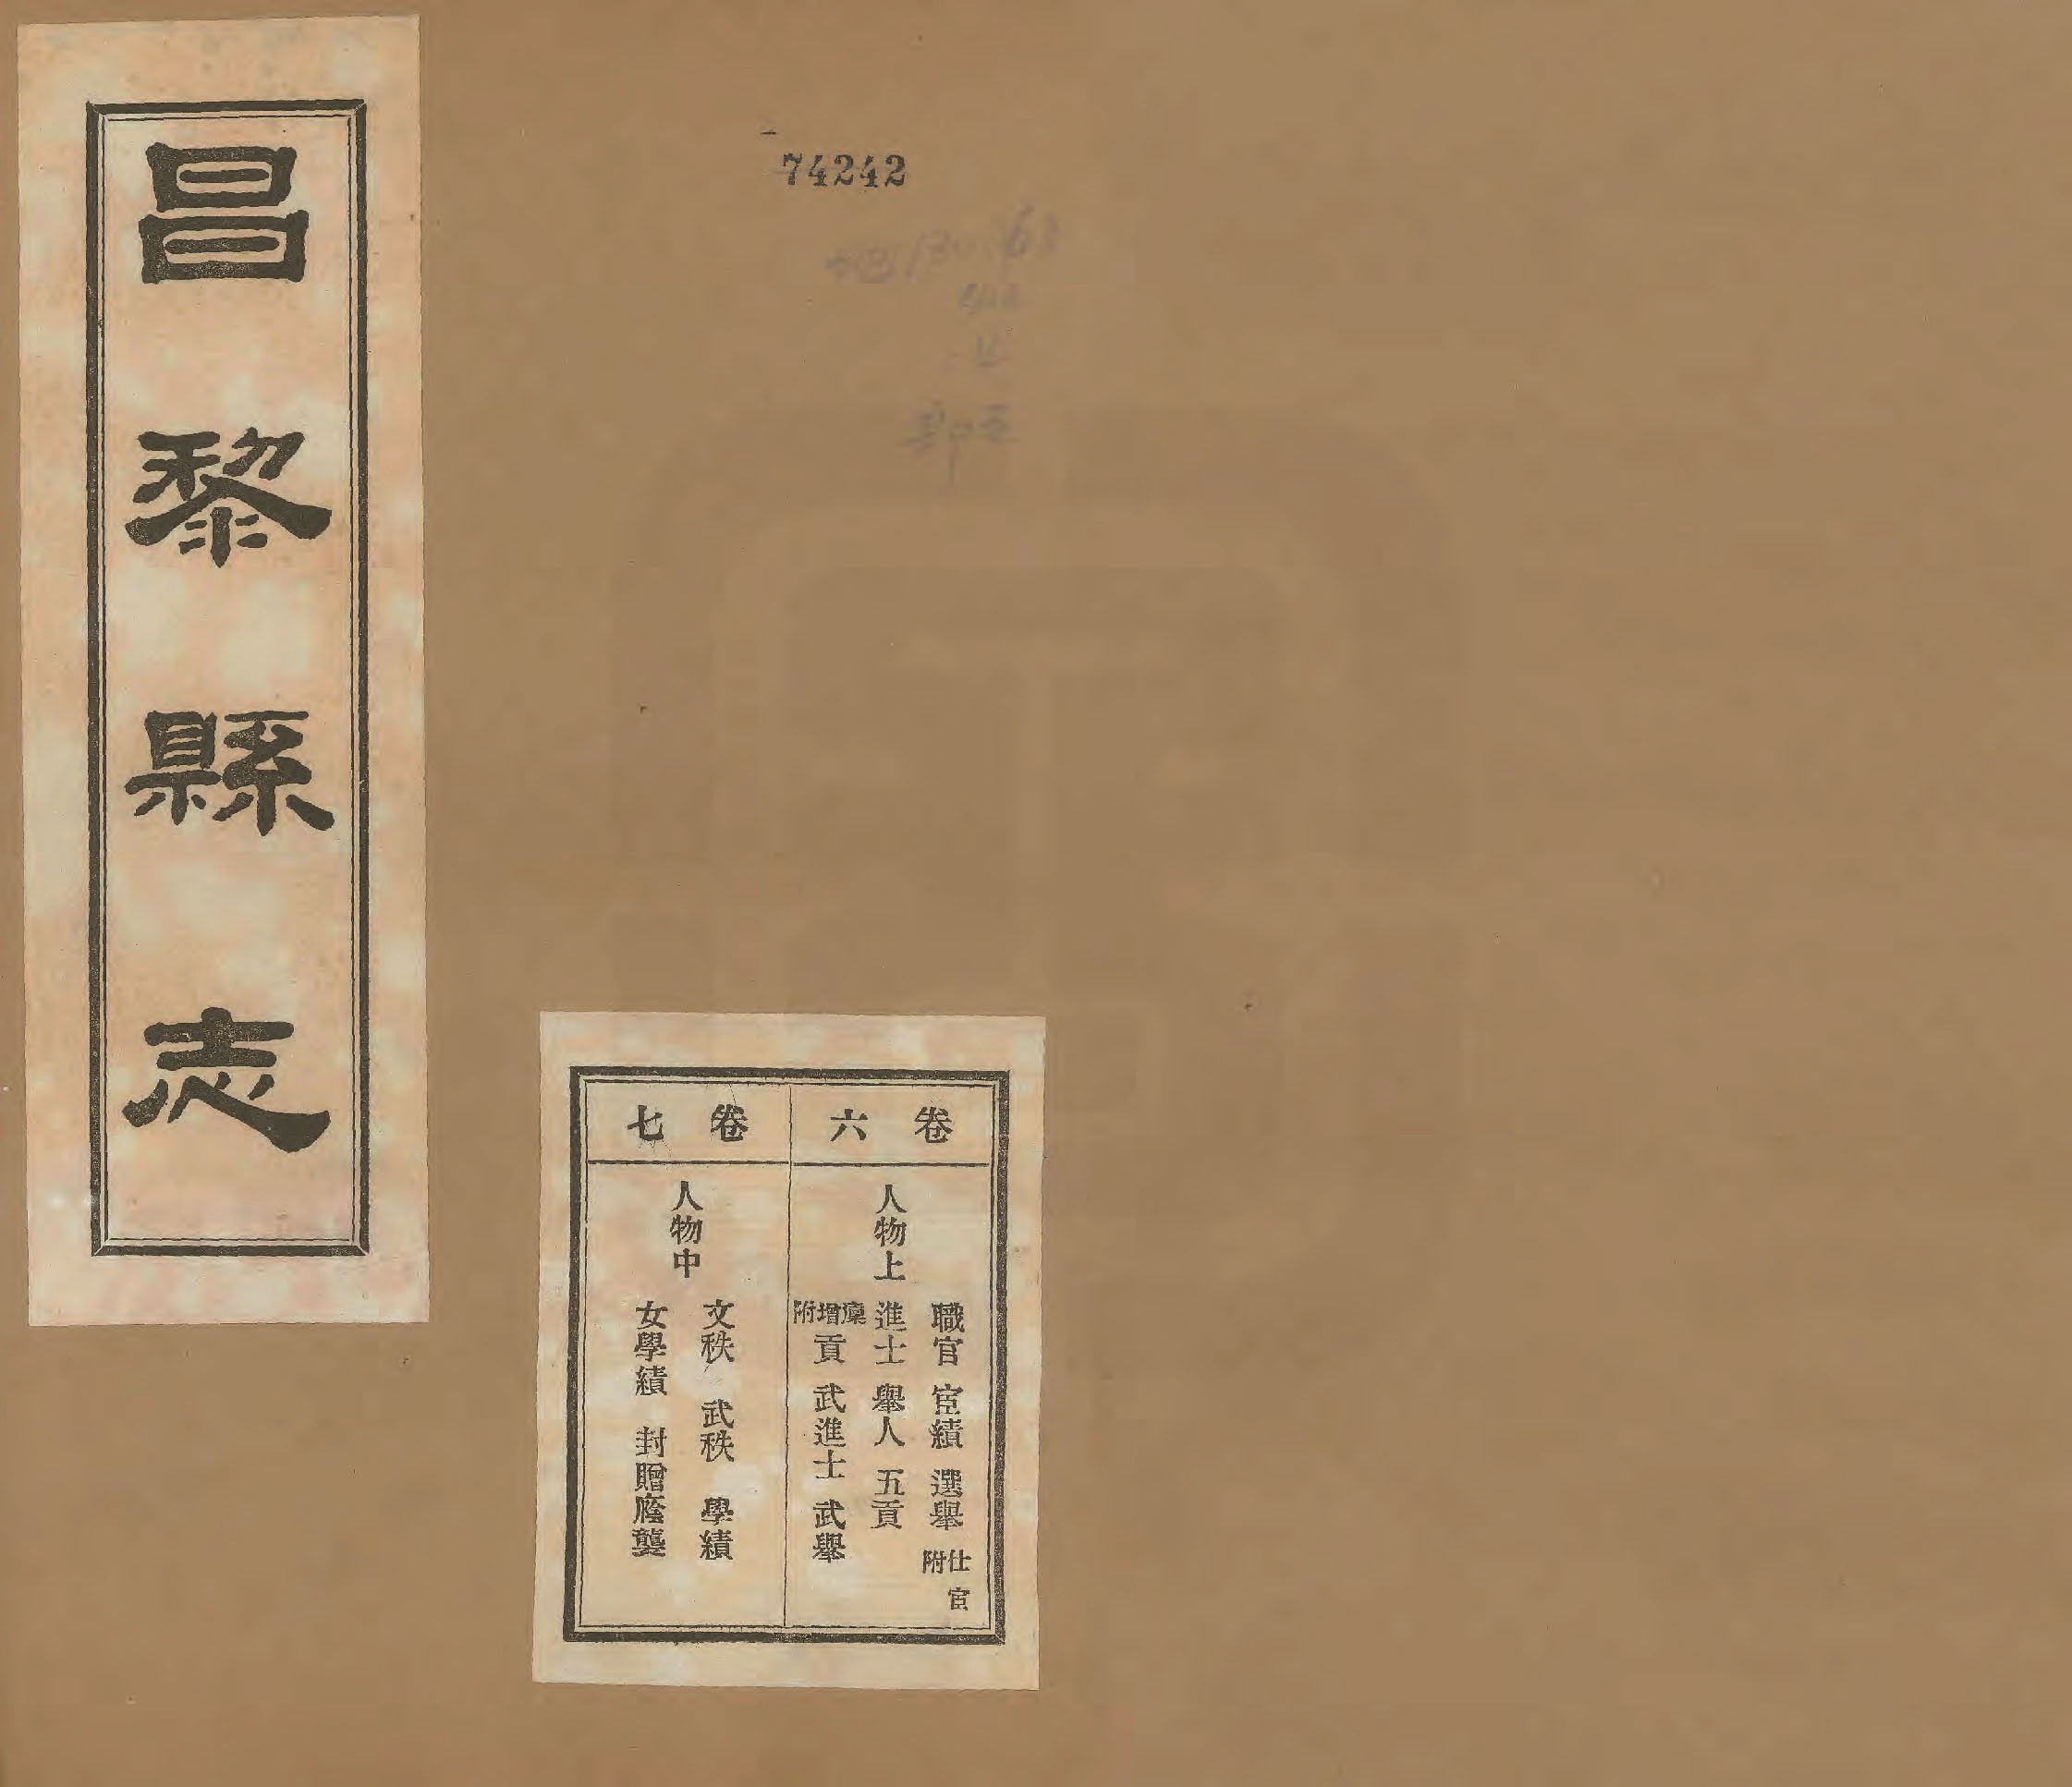 昌黎縣志
74242
卷六
人物上
職官 宦績 選舉 仕宦附
進士 舉人 五貢
廩增附貢 武進士 武舉
卷七
人物中
文秩 武秩 學績
女學績 封贈廕襲